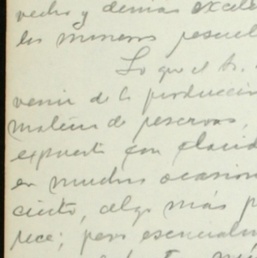 vecho y demás excele
los mineros
Lo que el Sr.
venir de la producción
materia de reservas,
expuesto con clarid
en muchas ocasion
cierto, algo más p
rece; pero esencialm